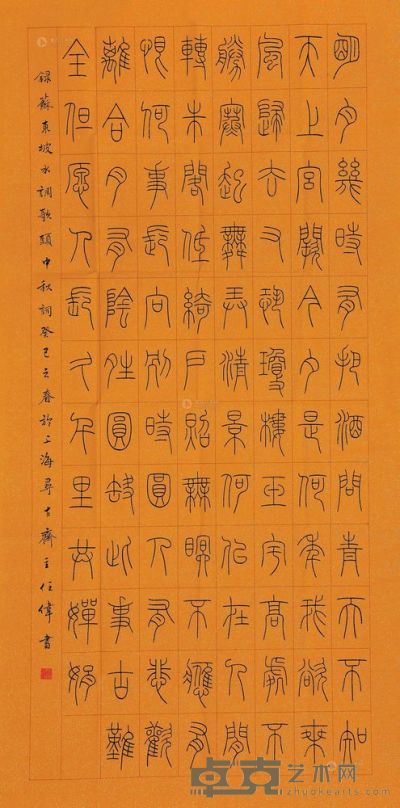 明月幾時有把酒問青天不知
天上宮闕今夕是何年我欲乘
風歸去又恐瓊樓玉宇高處不
勝寒起舞弄清景何似在人間
轉朱閣低綺戶照無眠不應有
恨何事長向別時圓人有悲歡
離合月有陰晴圓缺此事古難
全但願人長久千里共嬋娟
錄蘇東坡水調歌頭中秋詞癸巳之春於上海尋古齋主任偉書
卓克艺术网
zhuokearts.com